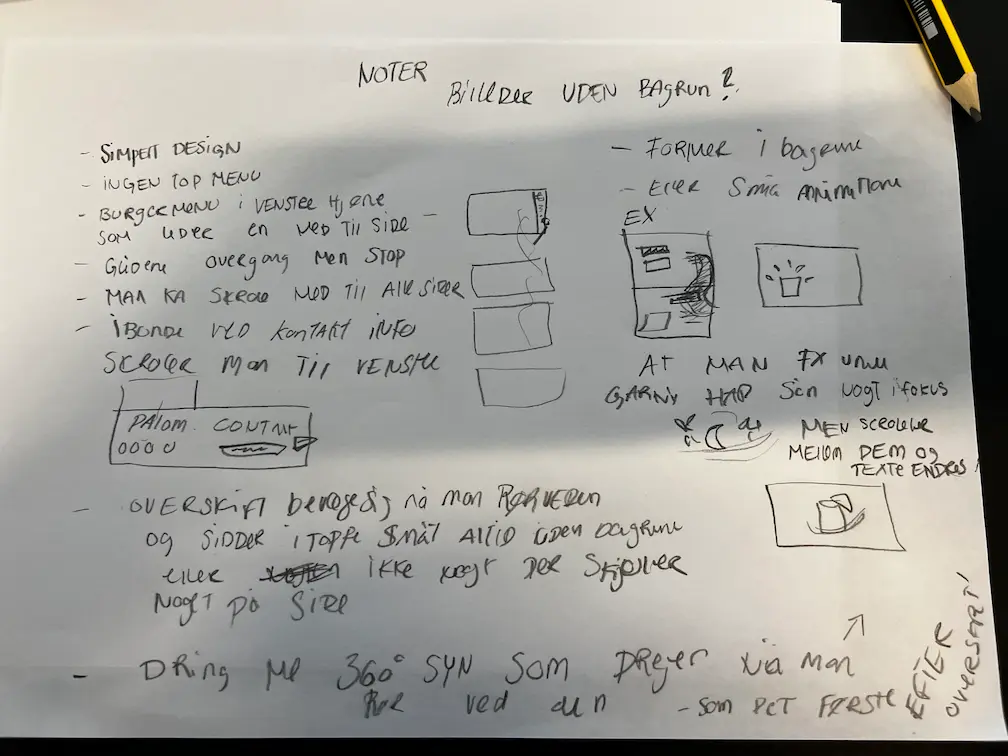 NOTER
BillEDER UDEN BAgRUN?
- SiMpElt DESIGN
- iNGEN TOP MENU
- BURGERMENU i VENSTRE HJØRNE
SOM UDER en NED Til SIDE
- GliDENE overgang Men STOP
- MAN KA SKROLE NED Til AllE SIDER
- i BUNDE VED KONTAKT iNFO
SKROLER Man Til VENSTRE
PAlOM CONTAKT
OOOO
- FORMER i bagrune
- EllER Små ANiMATIONE
EX
AT MAN FX
HAR Sån nogt i fokus
MEN SCROLLER
MELLEM DEM og
TEXTE ENDRES
- OVERSKIFT bevæge sig nå man RØR VEDEN
og SIDDER i TOPPE Småt AlTiD uden bagrune
eller ikke nogt DER Skjuler
Noget på SIDE
- DRiNG ME 360° SYN SOM DREJER Nia man
RØR ved den - SOM DET FØRSTE
EFTER
OVERSKRIFT!